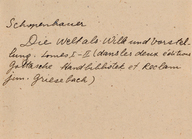 Schopenhauer
Die Welt als Wille und Vorstel-
lung. tomes I-II (dans les deux éditions
Cottasche Handbibliothek et Reclam
Griesebach)